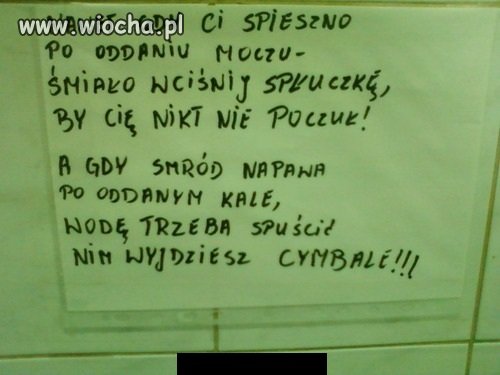 www.wiocha.pl
NAWET GDY CI SPIESZNO
PO ODDANIU MOCZU-
ŚMIAŁO WCIŚNIJ SPŁUCZKĘ,
BY CIĘ NIKT NIE POCZUŁ!
A GDY SMRÓD NAPAWA
PO ODDANYM KALE,
WODĘ TRZEBA SPUŚCIĆ
NIM WYJDZIESZ CYMBALE!!!